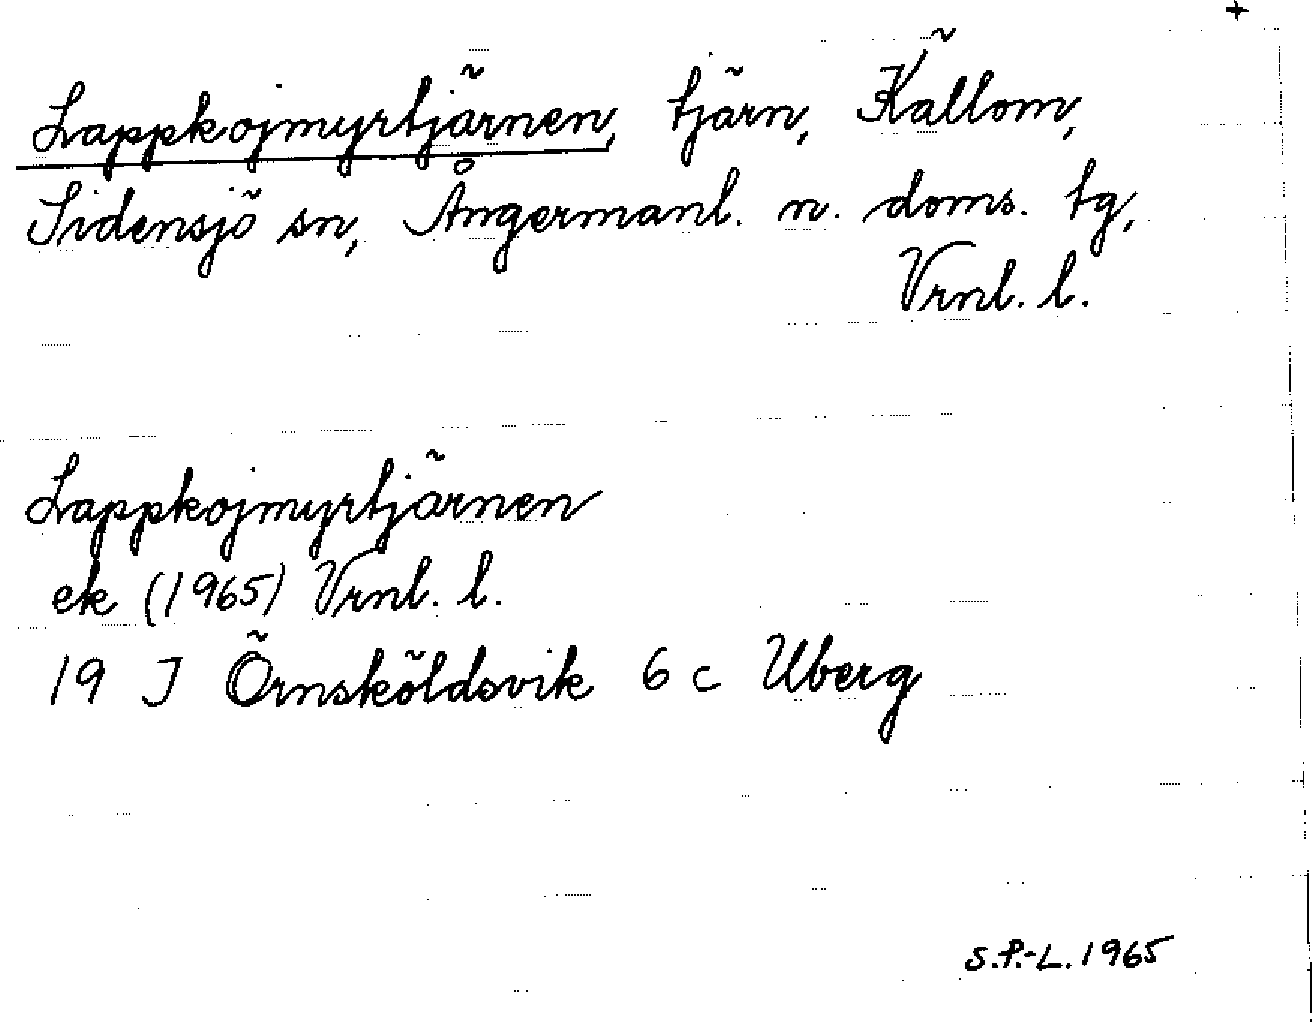 +
Lappkojmyrtjärnen, tjärn, Källom,
Sidensjö sn, Ångermanl. n. doms. tg,
Vrnl. l.
Lappkojmyrtjärnen
ek (1965) Vrnl. l.
19 J Örnsköldsvik 6 c Uberg
S.P.-L. 1965